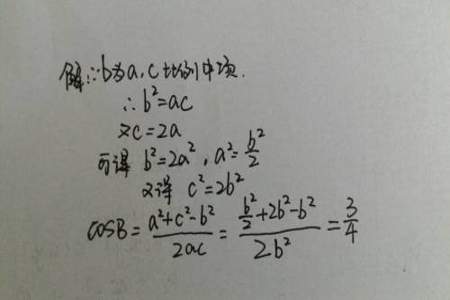 解:∵b为a,c比例中项.
∴b²=ac
又c=2a
可得 b²=2a²,a²=b²/2
又得 c²=2b²
cosB=(a²+c²-b²)/2ac=(b²/2+2b²-b²)/2b²=3/4